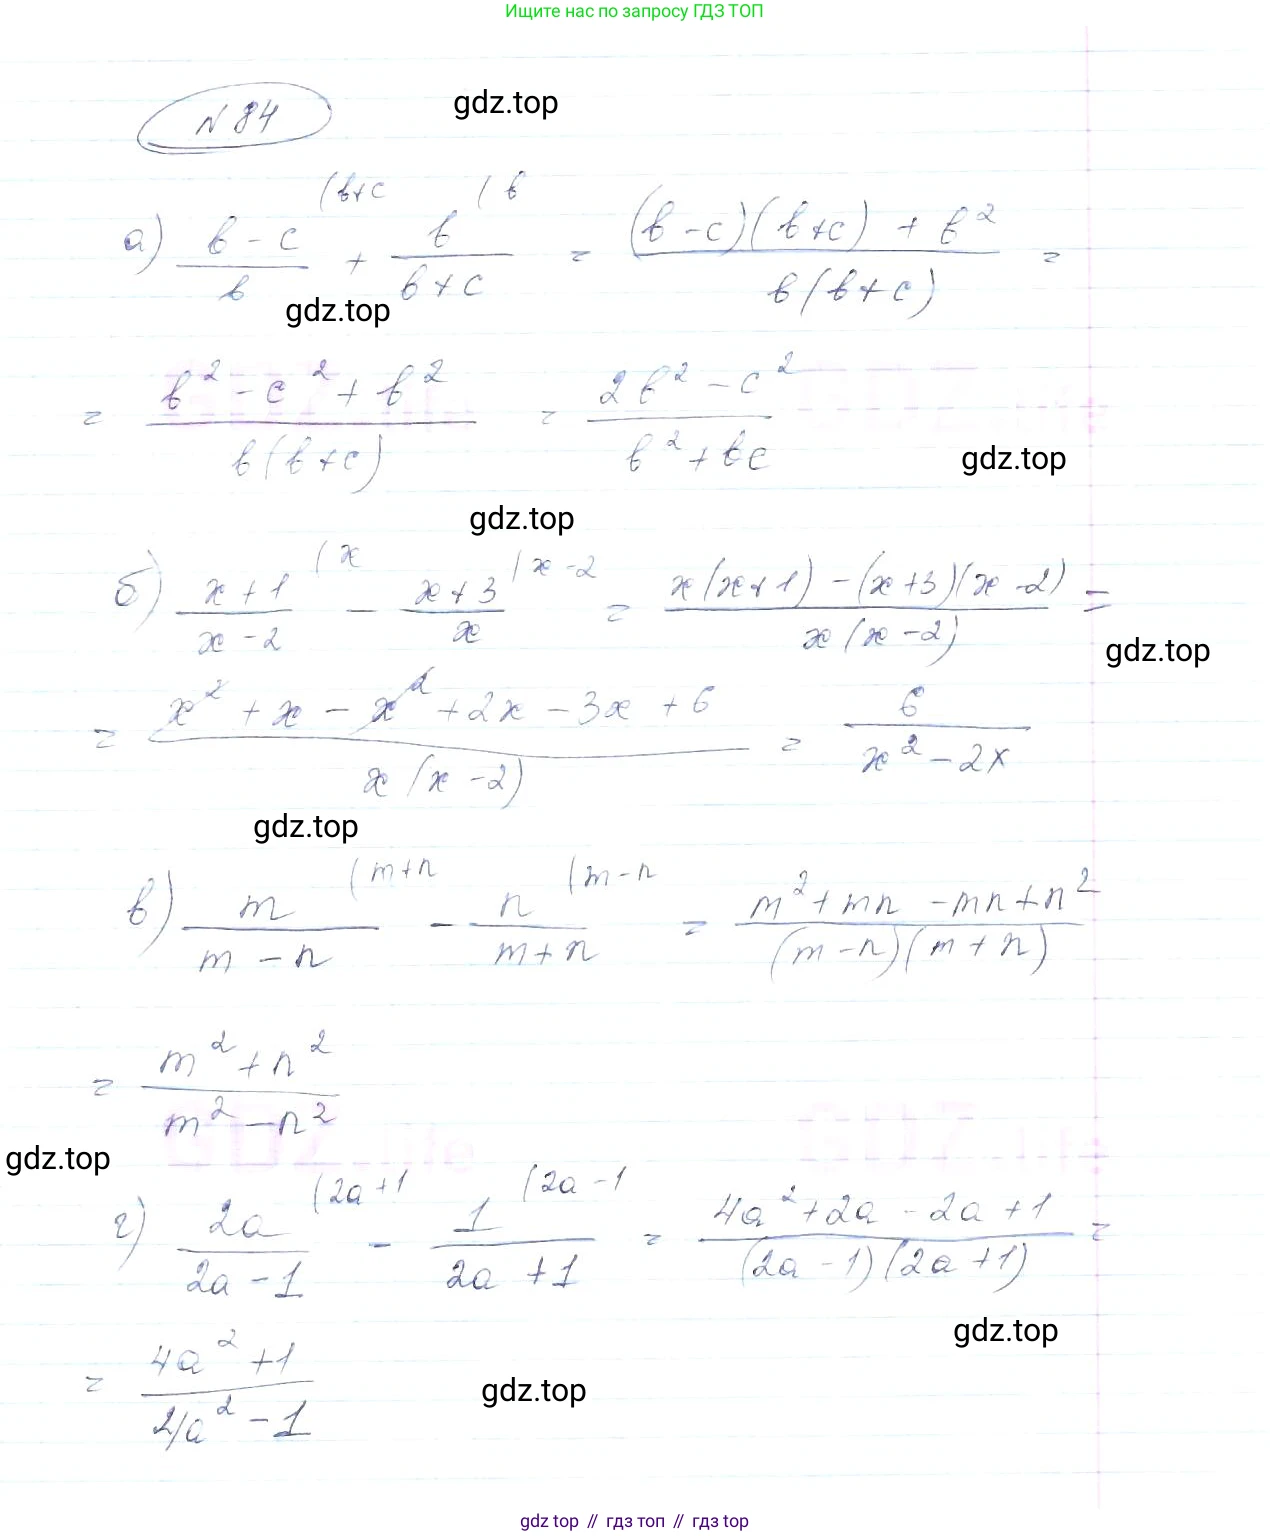 Ищите нас по запросу ГДЗ ТОП
N 84
gdz.top
а) \frac{b-c}{b}^{(b+c} + \frac{b}{b+c}^{(b} = \frac{(b-c)(b+c)+b^2}{b(b+c)} =
gdz.top
= \frac{b^2-c^2+b^2}{b(b+c)} = \frac{2b^2-c^2}{b^2+bc}
gdz.top
gdz.top
б) \frac{x+1}{x-2}^{(x} - \frac{x+3}{x}^{(x-2} = \frac{x(x+1)-(x+3)(x-2)}{x(x-2)} =
gdz.top
= \frac{x^2+x-x^2+2x-3x+6}{x(x-2)} = \frac{6}{x^2-2x}
gdz.top
в) \frac{m}{m-n}^{(m+n} - \frac{n}{m+n}^{(m-n} = \frac{m^2+mn-mn+n^2}{(m-n)(m+n)}
= \frac{m^2+n^2}{m^2-n^2}
gdz.top
г) \frac{2a}{2a-1}^{(2a+1} - \frac{1}{2a+1}^{(2a-1} = \frac{4a^2+2a-2a+1}{(2a-1)(2a+1)} =
gdz.top
= \frac{4a^2+1}{4a^2-1}
gdz.top
gdz top // гдз топ // gdz top